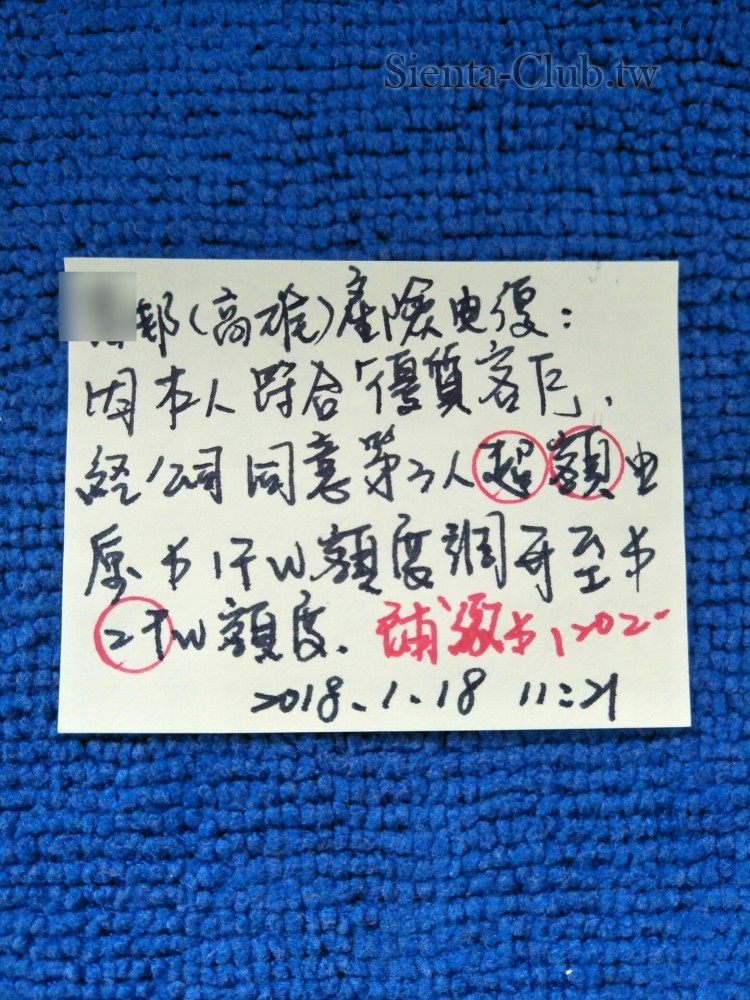 Sienta-Club.tw
邦(高雄)產險电復:
因本人符合「優質客戶,
經公司同意第3人超額由
原$1千W額度調升至$
2千W額度. 補繳$1202-
2018.1.18 11:21